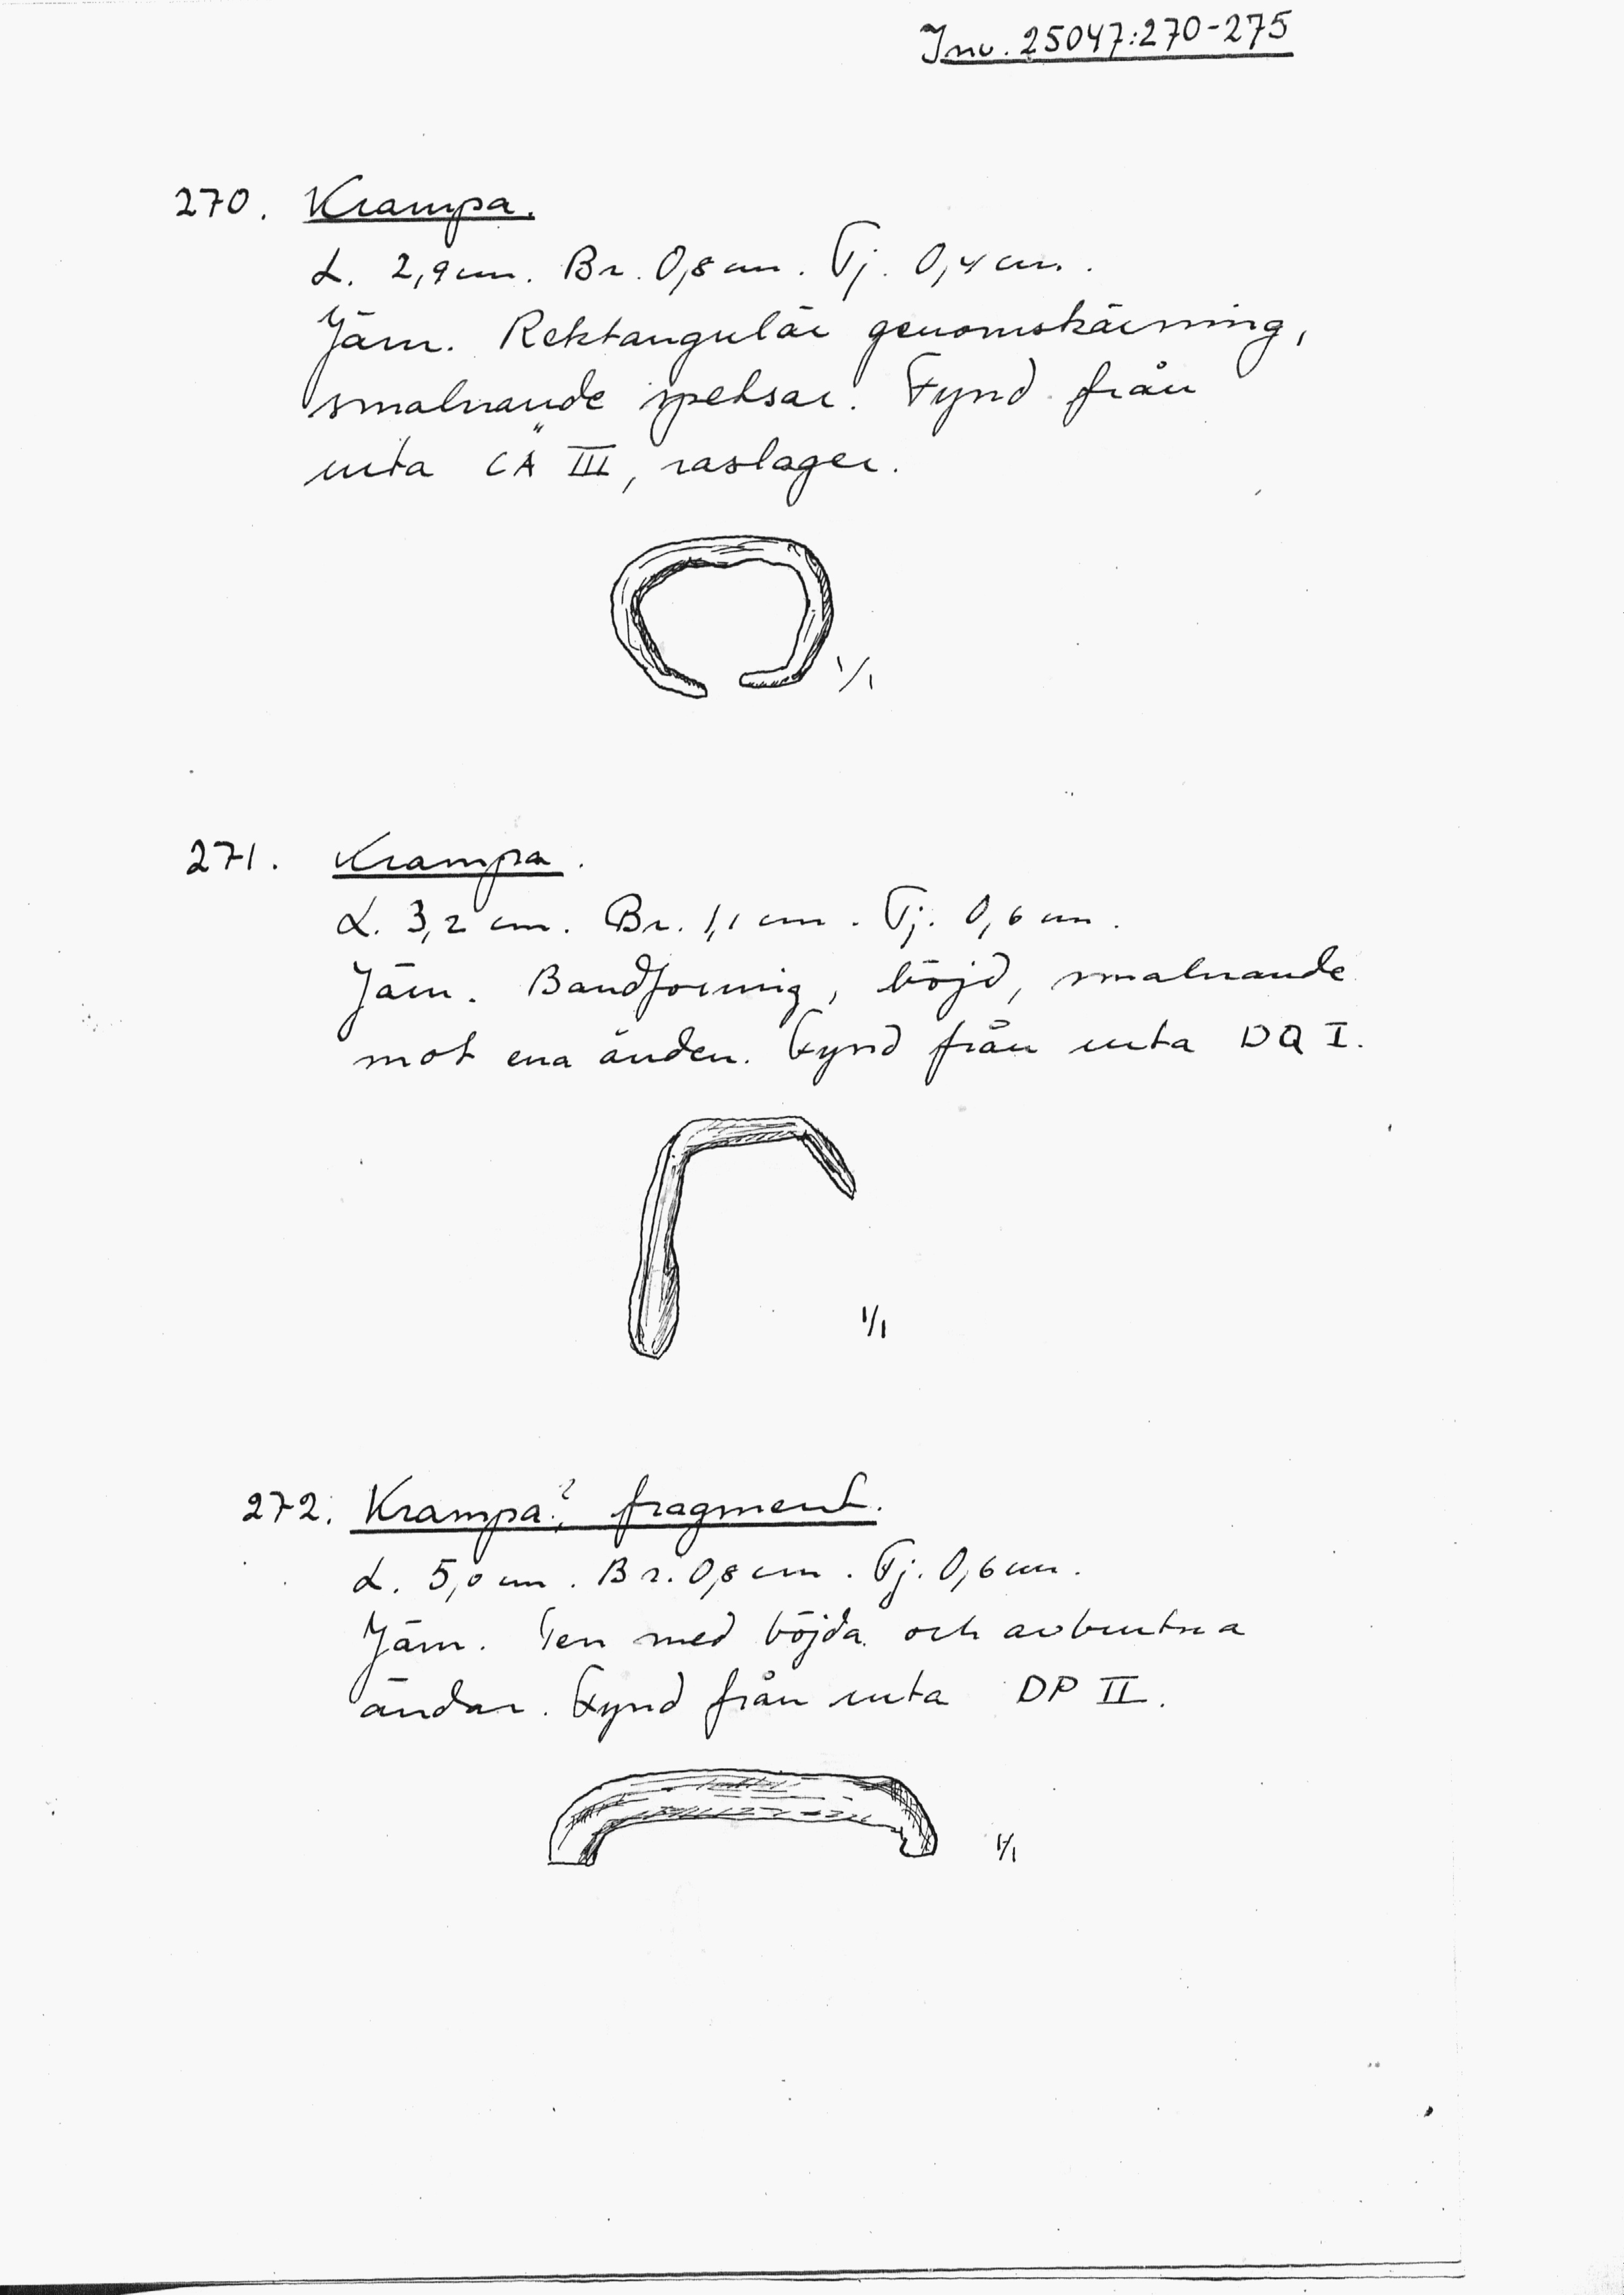 Inv. 25047:270-275
270. Krampa.
L. 2,9 cm. Br. 0,8 cm. Tj. 0,4 cm.
Järn. Rektangulär genomskärning,
smalnande spetsar. Fynd från
ruta CÄ III, raslager.
1/1
271. Krampa.
L. 3,2 cm. Br. 1,1 cm. Tj. 0,6 cm.
Järn. Bandformig, böjd, smalnande
mot ena änden. Fynd från ruta DQ I.
1/1
272. Krampa?, fragment.
L. 5,0 cm. Br. 0,8 cm. Tj. 0,6 cm.
Järn. Ten med böjda och avbrutna
ändar. Fynd från ruta DP II.
1/1